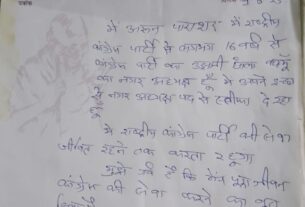 में अरुन पाराशर में राष्ट्रीय
कांग्रेस पार्टी से लगभग 16 वर्ष से
कांग्रेस पार्टी का
का नगर अध्यक्ष हूँ में अपने इच्छा
से नगर अध्यक्ष पद से इस्तीफा दे रहा
हूँ
में राष्ट्रीय कांग्रेस पार्टी की सेवा
जीवित रहने तक करता रहूगा
मुझे गर्व है कि मेंने पूरा जीवन
कांग्रेस की सेवा करने का